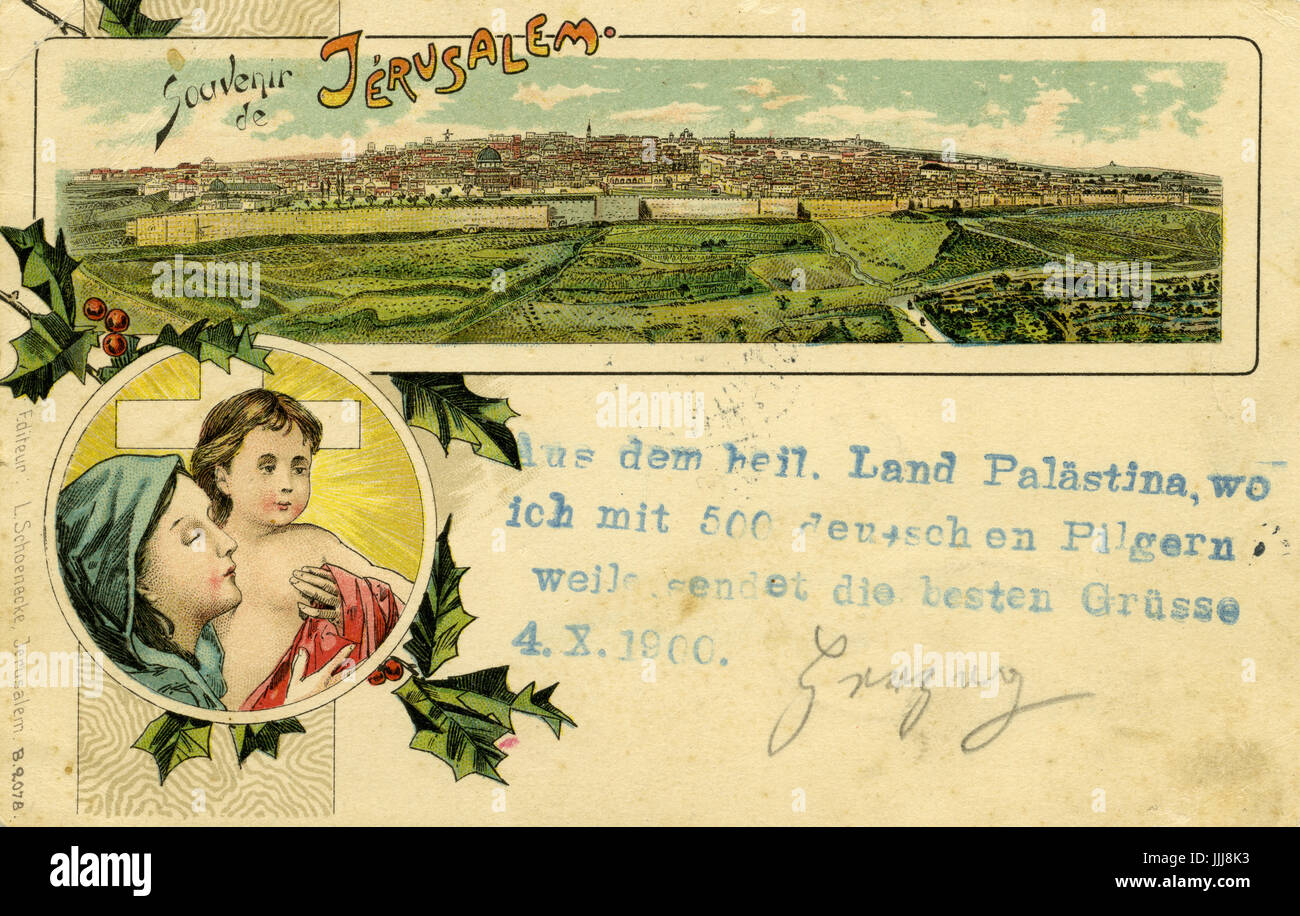 Souvenir
de
JÉRUSALEM.
Aus dem heil. Land Palästina, wo
ich mit 500 deutschen Pilgern
weile sendet die besten Grüsse
4.X.1900.
Editeur: L. Schoenecke, Jerusalem. B.2078.
alamy
Image ID: JJJ8K3
www.alamy.com